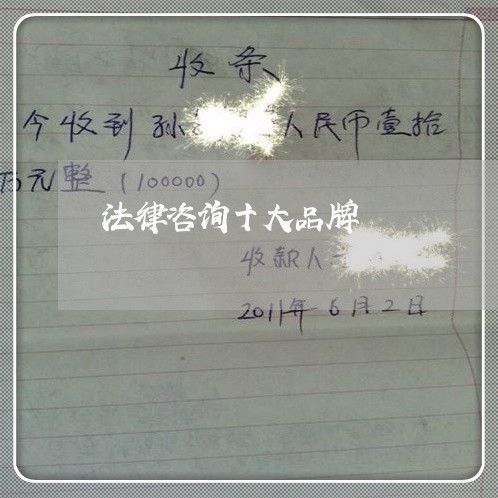 收条
今收到孙 人民币壹拾
万元整（100000）
法律咨询十大品牌
收款人
2011年6月2日